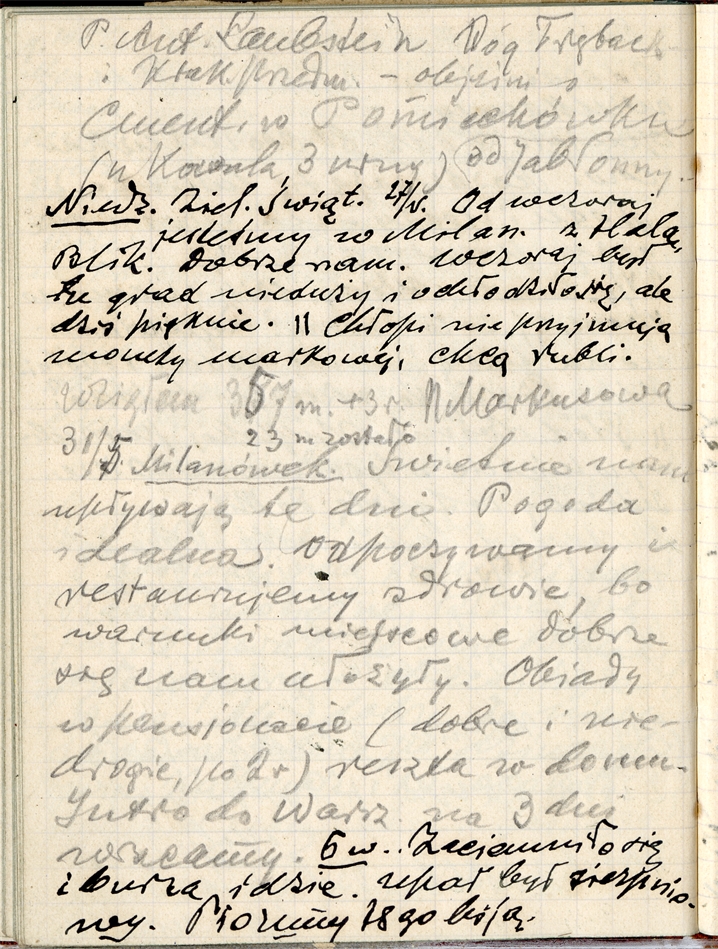 P. Ant. Laubstein Róg Tręback.
i Krak. Przedm. –
Cment. w Pomiechówku
(u Kowala, 3 urny) od Jabłonny.
Niedz. Ziel. Świąt. 27/5. Od wczoraj
jesteśmy w Milan. z Hala,
Blik. Dobrze nam. Wczoraj był
tu grad nieduży i ochłodziło się, ale
dziś pięknie. || Chłopi nie przyjmują
monety markowej, chcą rubli.
Wziąłem 357 m. + 3 r. Markusowa
23 m zostało
31/5. Milanówek. Świetnie nam
upływają te dni. Pogoda
idealna. Odpoczywamy i
restaurujemy zdrowie, bo
warunki miejscowe dobrze
się nam ułożyły. Obiady
w pensjonacie (dobre i nie-
drogie, po 2 r) reszta w domu.
Jutro do Warsz. na 3 dni
wracamy. 6 w. Zaciemniło się
i burza idzie. Upał był sierpnio-
wy. Pioruny 18go biją.